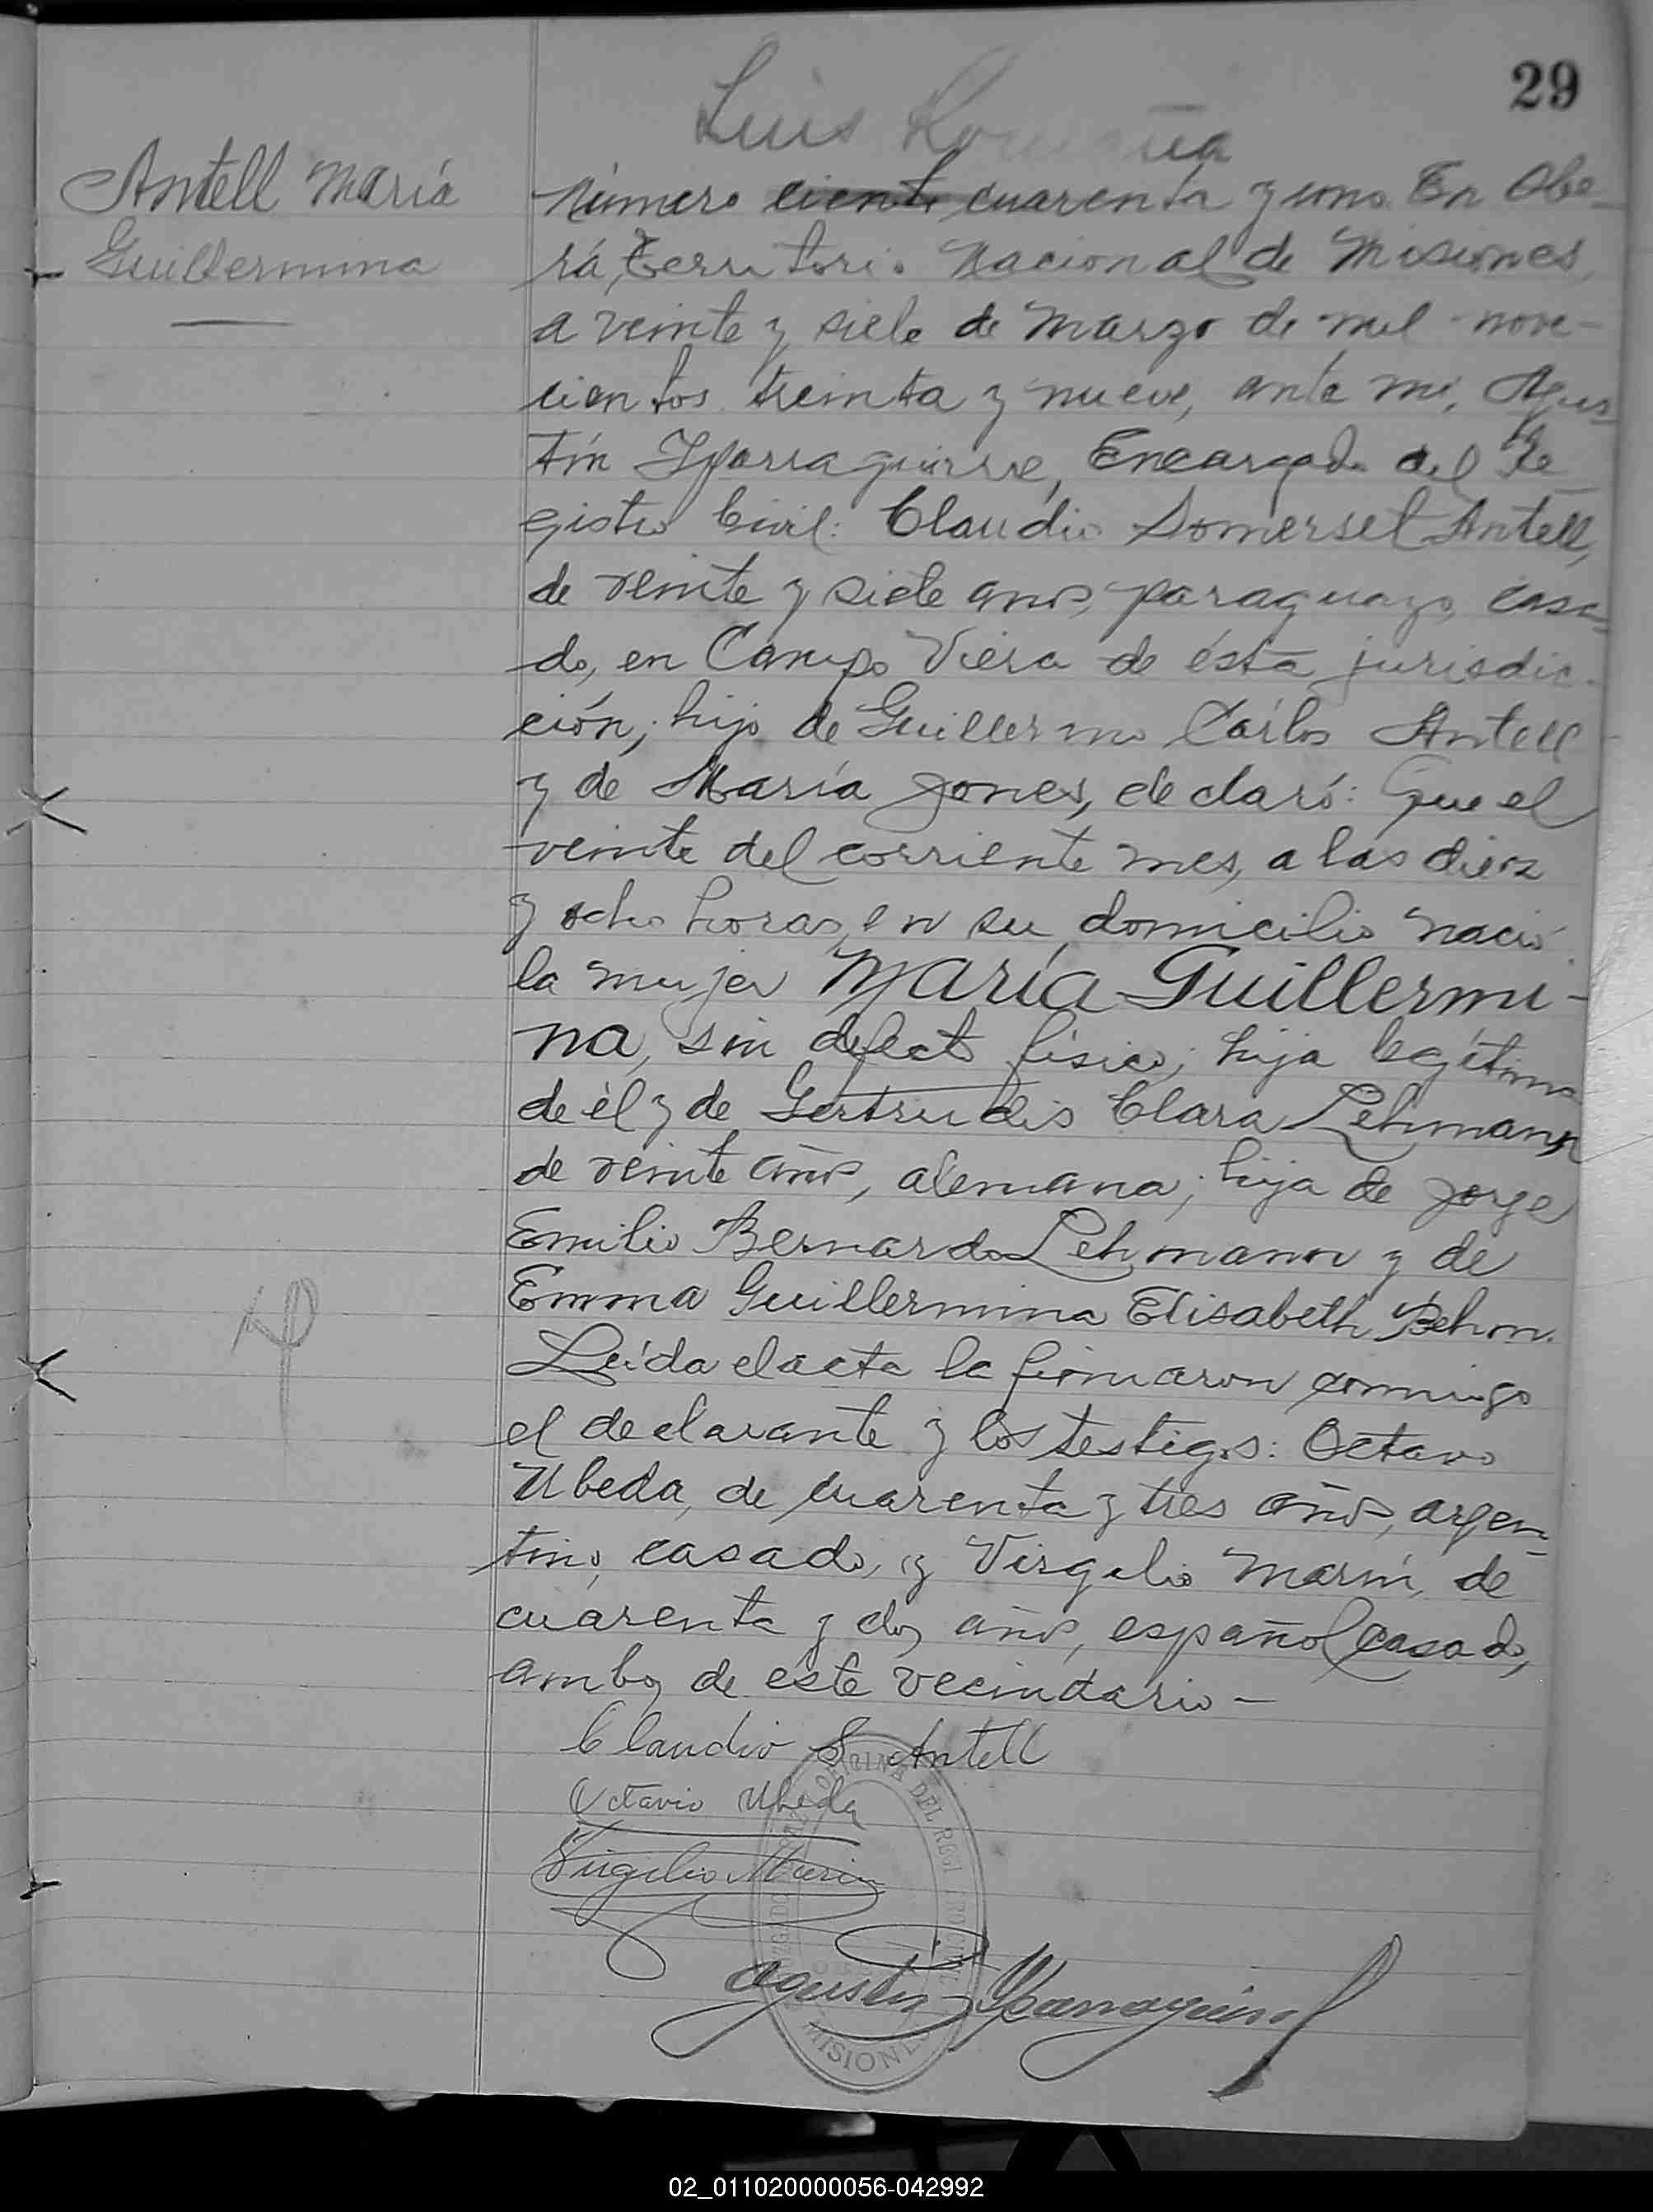 29
Luis
Antell María
Guillermina
Número ciento cuarenta y uno. En Obe-
rá, Territorio Nacional de Misiones,
a veinte y siete de Marzo de mil nove-
cientos treinta y nueve, ante mí, Agus-
tín Yparraguirre, Encargado del Re-
gistro Civil: Claudio Somerset Antell,
de veinte y siete años, paraguayo, casa-
do, en Campo Viera de ésta jurisdic-
ción; hijo de Guillermo Cárlos Antell
y de María Jones, declaró: Que el
veinte del corriente mes, a las diez
y ocho horas, en su domicilio nació
la mujer María Guillermi-
na, sin defecto físico; hija legítima
de él y de Gertrudis Clara Lehmann
de veinte años, alemana; hija de Jorge
Emilio Bernardo Lehmann y de
Emma Guillermina Elisabeth Behm.
Leída el acta la firmaron conmigo
el declarante y los testigos: Octavo
Ubeda, de cuarenta y tres años, argen-
tino, casado, y Virgilio Marín, de
cuarenta y dos años, español casado,
ambos de este vecindario -
Claudio S. Antell
Octavio Ubeda
Virgilio Marin
Agustín Yparraguirre
OFICINA DEL REGI
MISIONES
02_011020000056-042992